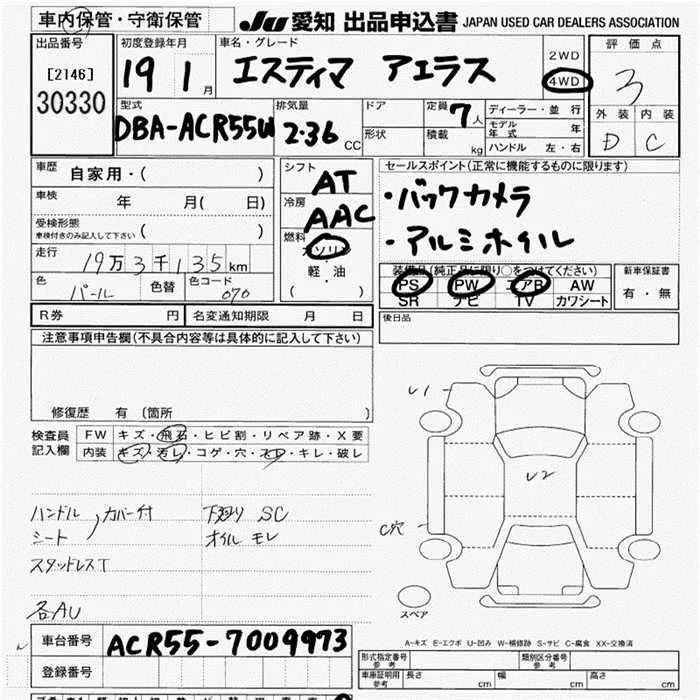 車内保管・守衛保管
JU 愛知 出品申込書 JAPAN USED CAR DEALERS ASSOCIATION
出品番号 初度登録年月 車名・グレード 2WD 評価点
[2146] 19 1月 エスティマ アエラス 4WD 3
30330
型式 排気量 ドア 定員 7人 ディーラー・並行 外装 内装
DBA-ACR55W 2.36 CC 形状 積載 kg モデル年式 年 D C
ハンドル 左・右
車歴 自家用・( ) シフト AT セールスポイント(正常に機能するものに限ります)
車検 年 月( 日) 冷房 AAC ・バックカメラ
受検形態 ( )
車検付きのみ記入して下さい
燃料 ガソリン ・アルミホイル
走行 19万3千135km 軽・油
装備品(純正品に限り○をつけてください) 新車保証書
色 パール 色替 色コード 070 ( ) PS PW エアB AW 有・無
SR ナビ TV カワシート
R券 円 名変通知期限 月 日 後日品
注意事項申告欄(不具合内容等は具体的に記入して下さい)
修復歴 有 (箇所 )
検査員 FW キズ・飛石・ヒビ割・リペア跡・X要
記入欄 内装 キズ・汚レ・コゲ・穴・スレ・キレ・破レ
U1
U2
C穴
ハンドル
シート
カバー付
下廻り SC
オイル モレ
スタッドレスT
各AU
スペア
車台番号 ACR55-7009973
登録番号
A-キズ E-エクボ U-凹み W-補修跡 S-サビ C-腐食 XX-交換済
形式指定番号 参考 類別区分番号 参考
車庫証明用 参考 長さ cm 幅 cm 高さ cm